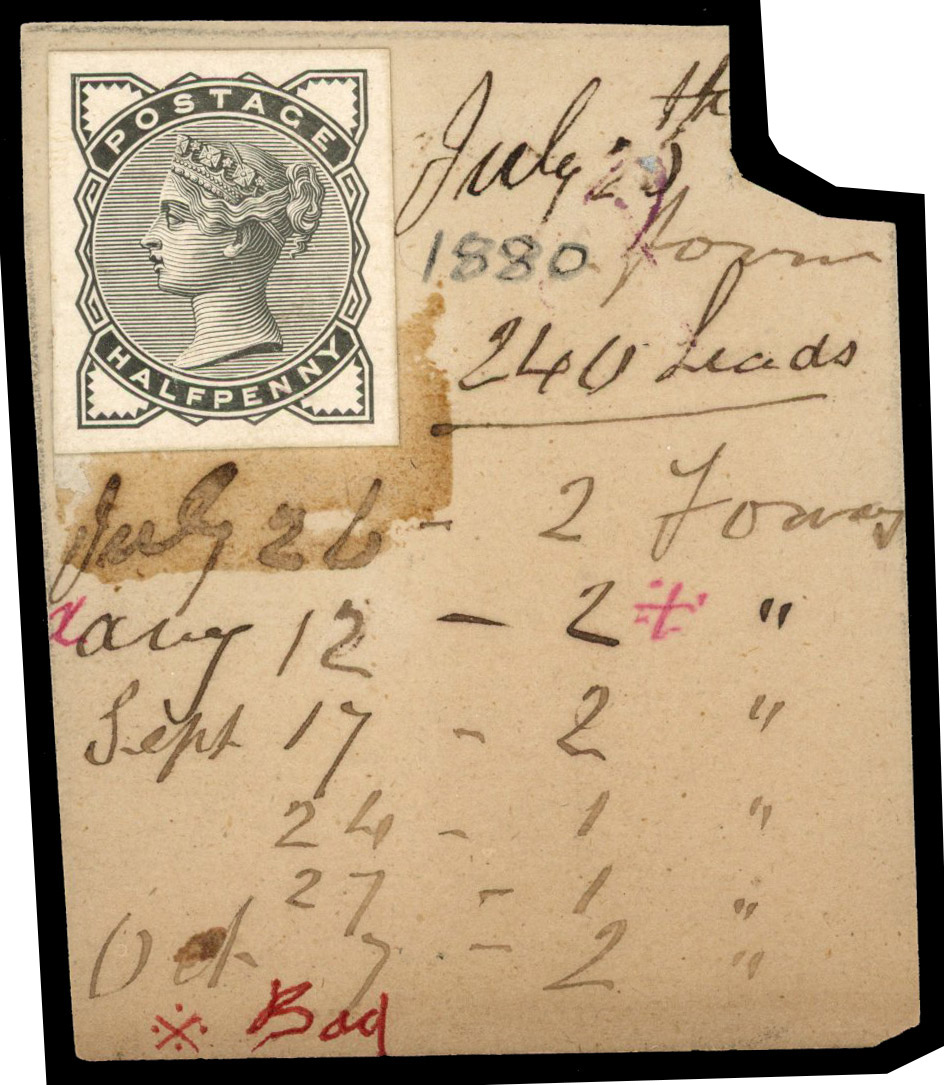 POSTAGE
HALFPENNY
July 23th
1880 form
240 Leads
July 26 - 2 Forms
Aug 12 - 2 "
Sept 17 - 2 "
24 - 1 "
27 - 1 "
Oct 7 - 2 "
※ Bad